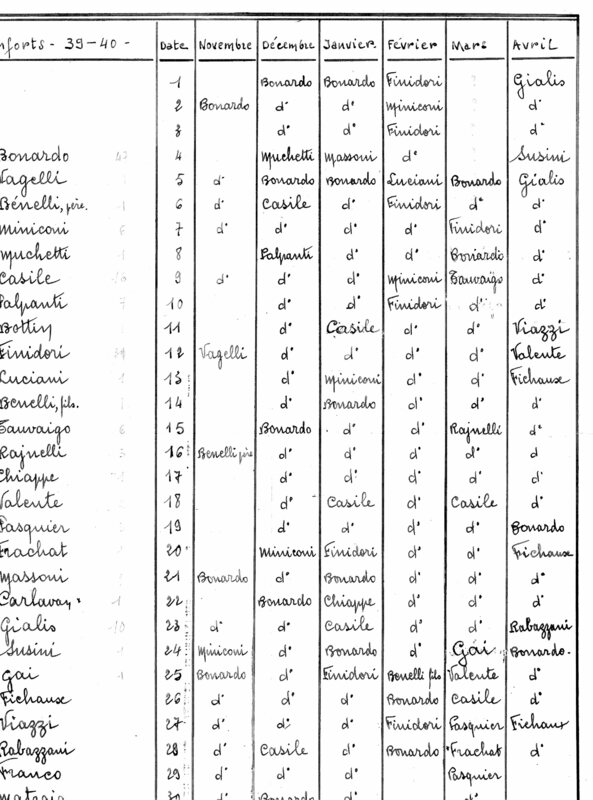 nforts - 39-40 - Date Novembre Décembre Janvier. Février Mars Avril
1 Bonardo Bonardo Finidori Gialis
2 Bonardo d° d° Miniconi d°
3 d° d° Finidori d°
Bonardo 47 4 Muchetti Massoni d° Susini
Vagelli 1 5 d° Bonardo Bonardo Luciani Bonardo Gialis
Bénelli, père. 1 6 d° Casile d° Finidori d° d°
Miniconi 6 7 d° d° d° d° Finidori d°
Muchetti 1 8 Palpanti d° d° Bonardo d°
Casile 9 d° d° d° Miniconi Tauvaigo d°
Palpanti 7 10 d° d° Finidori d° d°
Bottin 11 d° Casile d° d° Viazzi
Finidori 12 Vagelli d° d° d° d° Valente
Luciani 1 13 d° Miniconi d° d° Fichaux
Benelli, fils. 14 d° Bonardo d° d° d°
Tauvaigo 6 15 Bonardo d° d° Rajnelli d°
Rajnelli 3 16 Benelli père d° d° d° d° d
Chiappe 17 d° d° d° d° d°
Valente 18 d° Casile d° Casile d°
Pasquier 19 d° d° d° d° Bonardo
Frachat 20 Miniconi Finidori d° d° Fichaux
Massoni 21 Bonardo d° Bonardo d° d° d°
Carlavan 1 22 Bonardo Chiappe d° d° d°
Gialis 10 23 d° d° Casile d° d° Rabazzani
Susini 1 24 Miniconi d° Bonardo d° Gai Bonardo.
Gai 1 25 Bonardo d° Finidori Benelli fils Valente d°
Fichaux 26 d° d° d° Bonardo Casile d°
Viazzi 27 d° d° d° Finidori Pasquier Fichaux
Rabazzani 28 d° Casile d° Bonardo Frachat d°
Franco 29 d° d° d° Pasquier
30 d° Bonardo d° d° d°